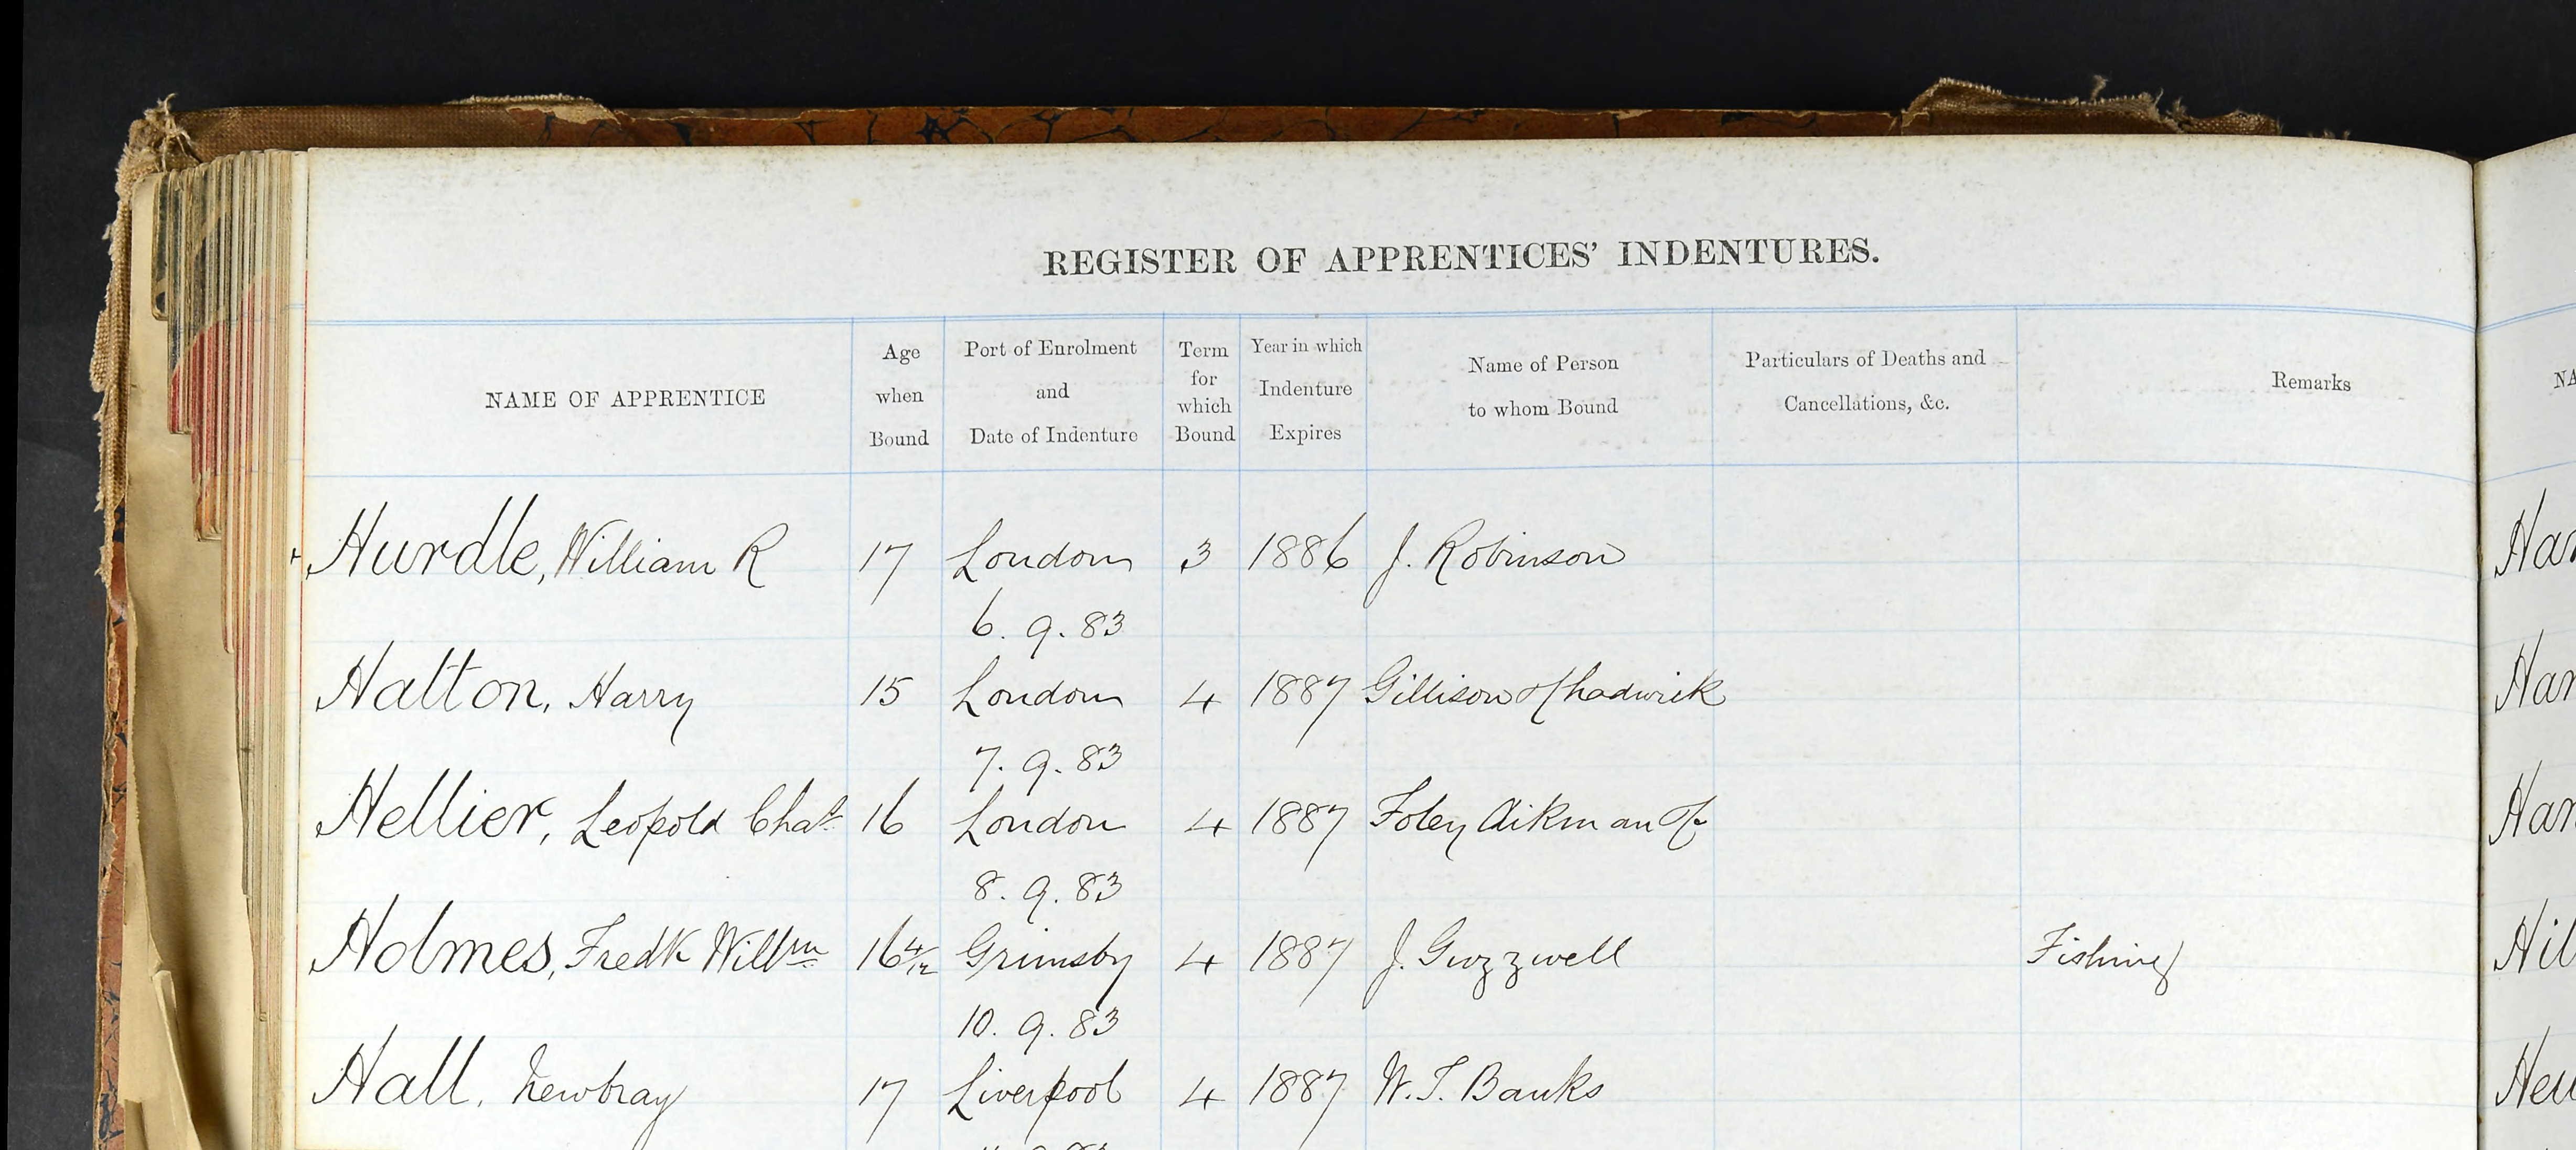 REGISTER OF APPRENTICES' INDENTURES.
NAME OF APPRENTICE
Age
when
Bound
Port of Enrolment
and
Date of Indenture
Term
for
which
Bound
Year in which
Indenture
Expires
Name of Person
to whom Bound
Particulars of Deaths and
Cancellations, &c.
Remarks
NA
Hurdle, William R 17 London 3 1886 J. Robinson
6. 9. 83
Hatton, Harry 15 London 4 1887 Gillison & Chadwick
7. 9. 83
Hellier, Leopold Chas 16 London 4 1887 Foley Aikman &
8. 9. 83
Holmes, Fredk Willm 16 4/12 Grimsby 4 1887 J. Guzzwell Fishing
10. 9. 83
Hall, Newbray 17 Liverpool 4 1887 W. T. Banks
Har
Har
Har
Hil